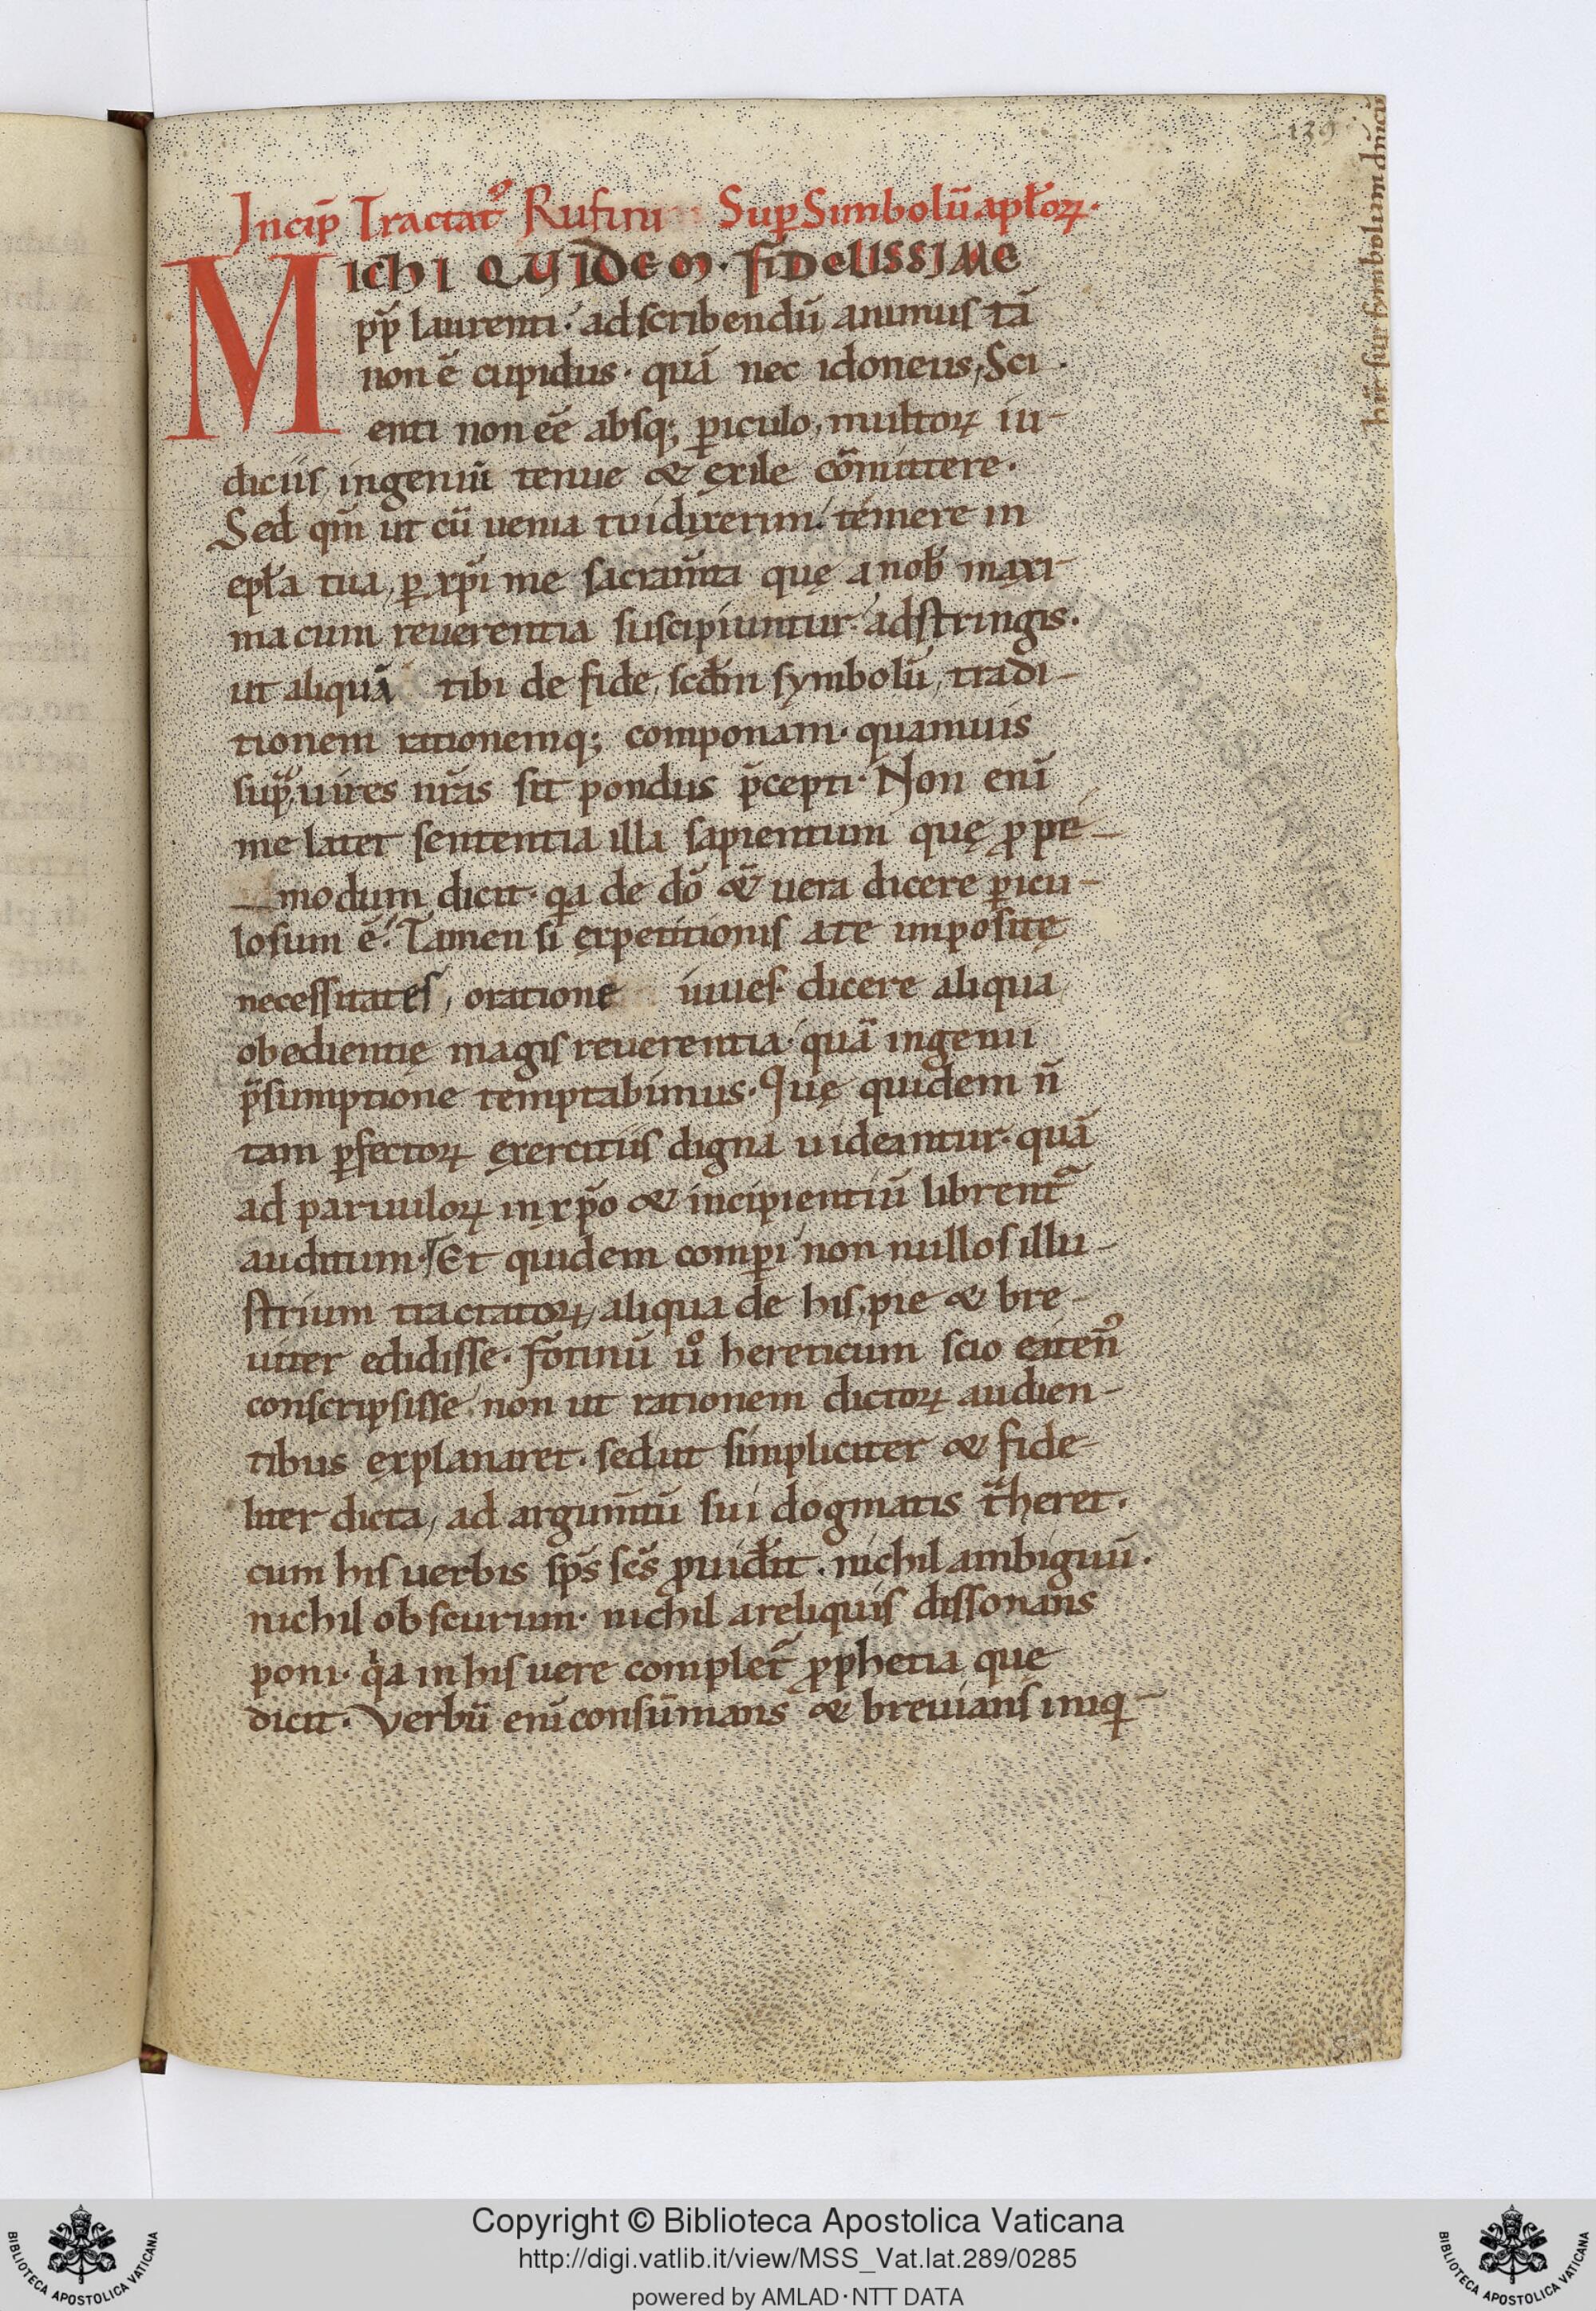 139
Incip̄ Tractatꝰ Rufini Sup Simbolū apłoꝝ.
MICHI QUIDEM. FIDELISSIME
pp̄ laurenti. ad scribendū animus tā
non ē cupidus. quā nec idoneus, Sci
enti non eē absq; ꝑiculo, multoꝝ iu-
diciis, ingeniū tenue & exile cōmittere.
Sed qm̄ ut cū uenia tui dixerim. temere in
epła tua, ꝑ xp̄i me sacram̄ta quę a nob̄ maxi-
ma cum reuerentia suscipiuntur. adstringis.
ut aliquā tibi de fide, scd̄m symbolū, tradi-
tionem rationemq; componam. quamuis
supͣ uires nr̄as sit pondus p̄cepti. Non enī
me latet sententia illa sapientum quę ꝓpe-
modum dicit. qa de dō & uera dicere ꝑicu-
losum ē. Tamen si expetitionis a te impositę
necessitates, oratione iuues. dicere aliqua
obedientię magis reuerentia. quā ingenii
p̄sumptione temptabimus. Quę quidem n̄
tam ꝑfectoꝝ exercitiis digna uideantur. quā
ad paruuloꝝ in xp̄o & incipientiū librent̄
auditum. Et quidem comperi non nullos illu-
strium tractatoꝝ, aliqua de his, pie & bre-
uiter edidisse. Fōtinū uͦ hereticum scio eaten̄ꝰ
conscripsisse, non ut rationem dictoꝝ audien-
tibus explanaret. sed ut simpliciter & fide-
liter dicta, ad argum̄tū sui dogmatis t̄heret.
cum his uerbis sp̄s sc̄s ꝓuiderit. nichil ambiguū.
nichil obscurum. nichil a reliquis dissonans
poni. qͥa in his uere complet̄ ꝓphetia quę
dicit. Verbū enī consūmans & breuians in eq-
Copyright © Biblioteca Apostolica Vaticana
http://digi.vatlib.it/view/MSS_Vat.lat.289/0285
powered by AMLAD·NTT DATA
BIBLIOTECA APOSTOLICA VATICANA
BIBLIOTECA APOSTOLICA VATICANA